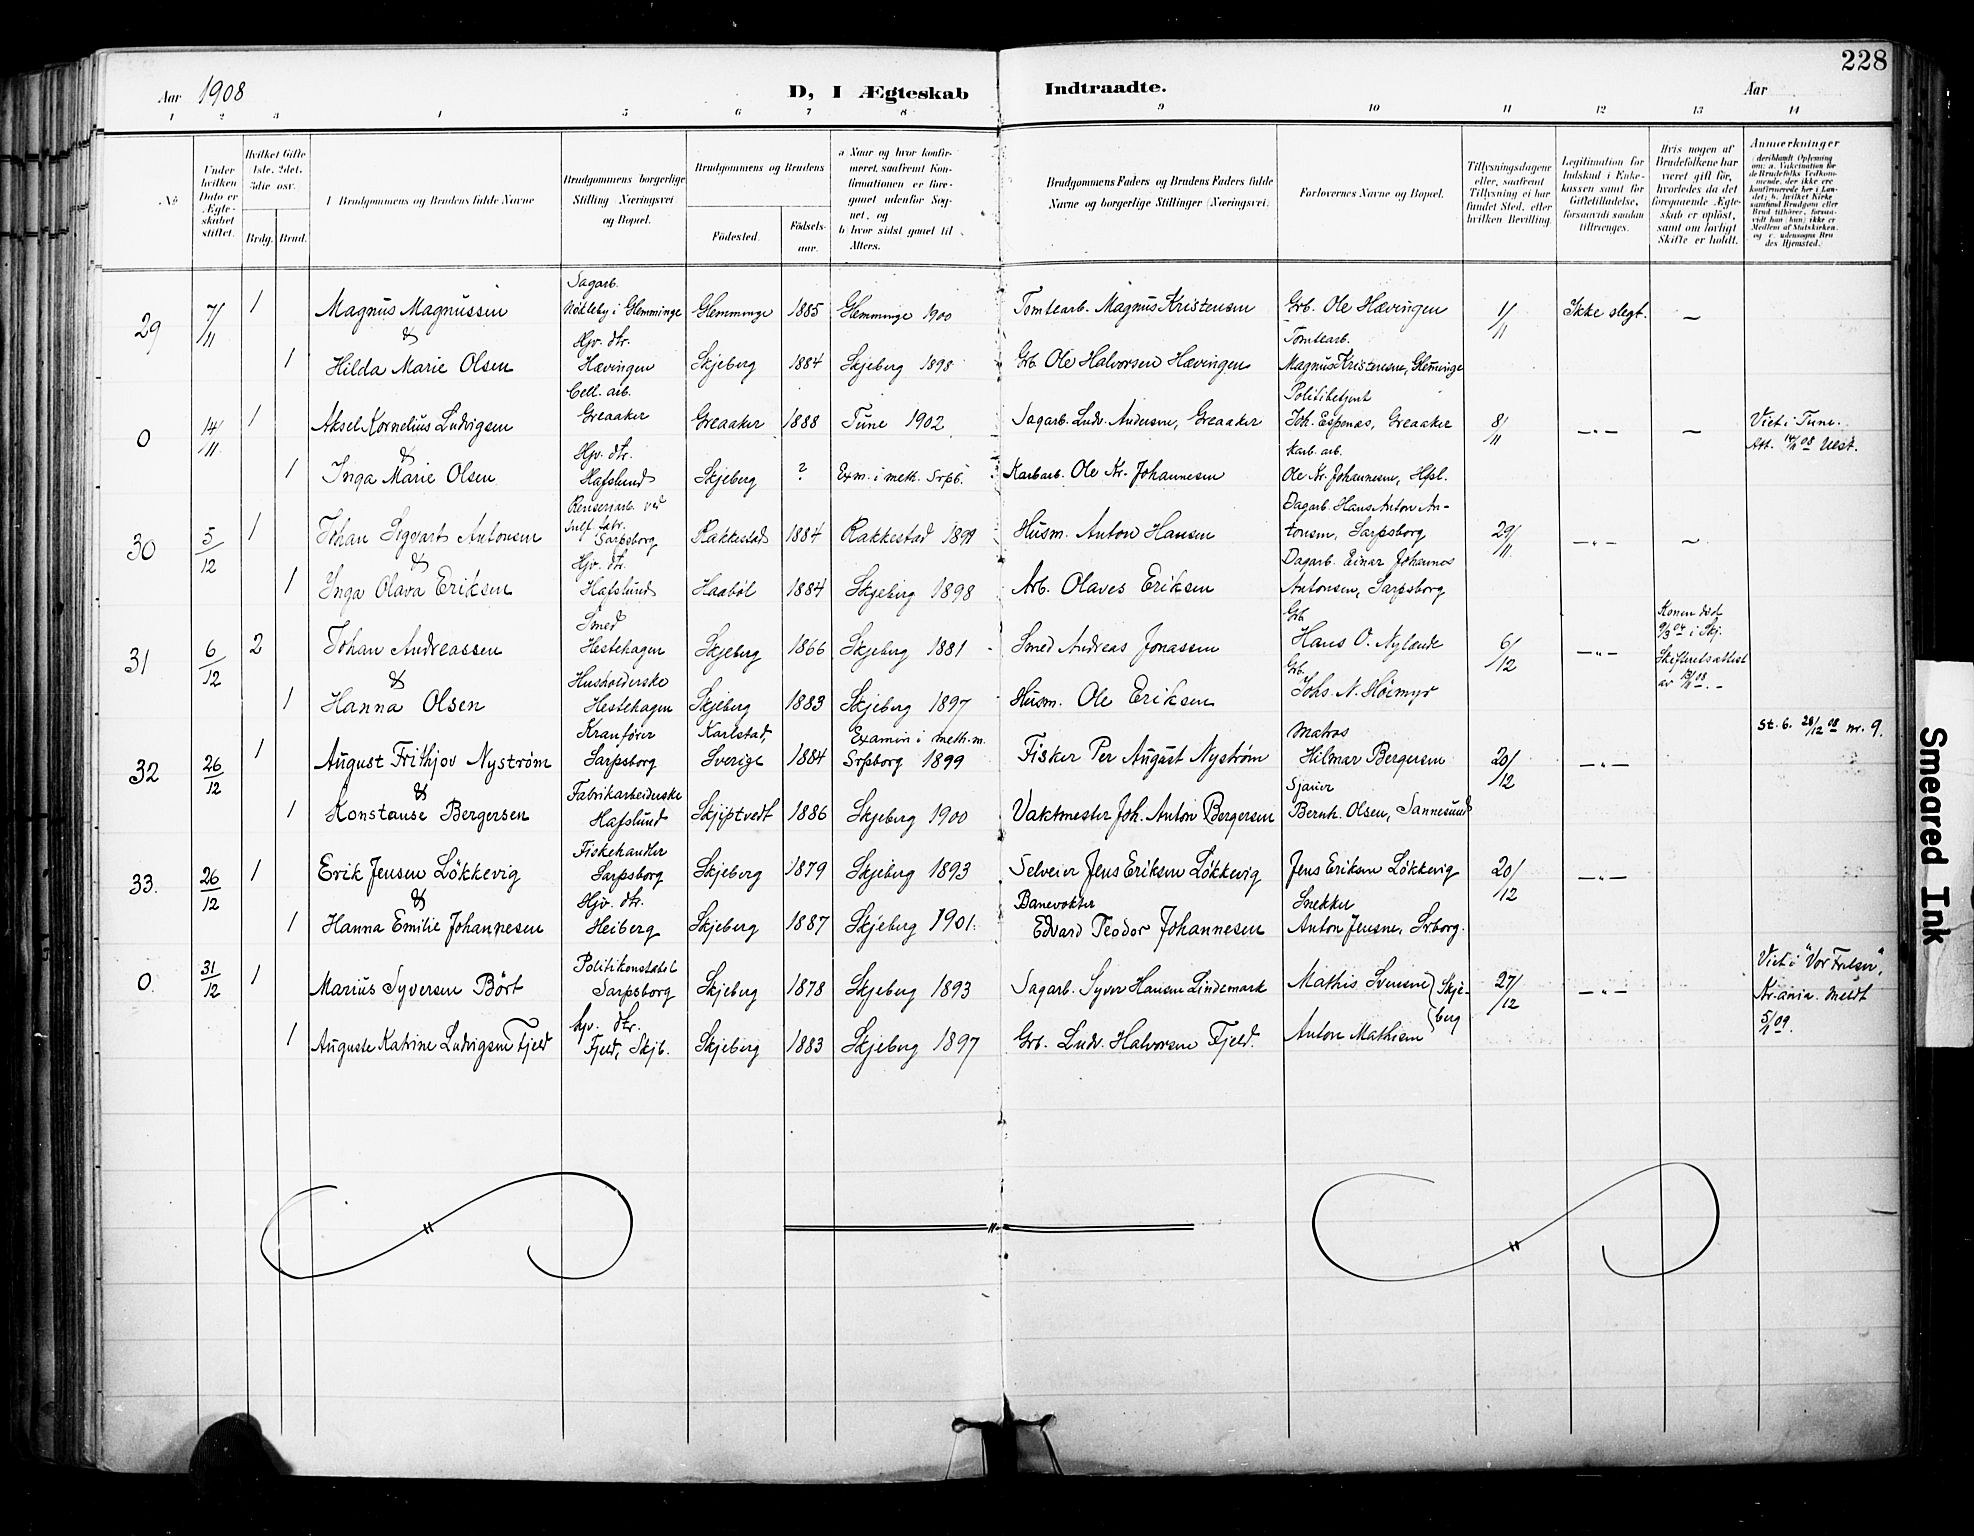 228
Aar 1908
D, I Ægteskab Indtraadte.
Aar
1 2 3 4 5 6 7 8 9 10 11 12 13 14
No
Under hvilken Dato er Ægteskabet stiftet.
Hvilket Gifte 1ste, 2det, 3die osv.
Brdg. Brud.
Brudgommens og Brudens fulde Navne
Brudgommens borgerlige Stilling (Næringsvei) og Bopæl.
Brudgommens og Brudens
Födested.
Födselsaar.
a Naar og hvor konfirmeret, saafremt Konfirmationen er foregaaet udenfor Sognet, og
b hvor sidst gaaet til Alters.
Brudgommens Faders og Brudens Faders fulde Navne og borgerlige Stillinger (Næringsvei)
Forlovernes Navne og Bopæl.
Tillysningsdagene eller, saafremt Tillysning ei har fundet Sted, efter hvilken Bevilling.
Legitimation for Indskud i Enkekassen samt for Giftetilladelse, forsaavidt saadan tiltrænges.
Hvis nogen af Brudefolkene har været gift för, hvorledes da det foregaaende Ægteskab er oplöst, samt om lovligt Skifte er holdt.
Anmærkninger
29 7/11 1 Magnus Magnussen Sagarb. Nölleby i Glemminge Glemminge 1885 Glemminge 1900 Tomtearb. Magnus Kristensen Grb. Ole Hævingen 1/11 Ikke slegt. —
&
1 Hilda Marie Olsen Hjv. dtr. Hævingen Skjeberg 1884 Skjeberg 1898 Grb. Ole Halvorsen Hævingen Tomtearb. Magnus Kristensen, Glemminge
0 14/11 1 Aksel Kornelius Ludvigsen Cell. arb. Greaaker Greaaker 1888 Tune 1902 Sagarb. Ludv. Andersen, Greaaker Politibetjent Joh. Espenæs, Greaaker 8/11 —"— — Viet i Tune.
&
1 Inga Marie Olsen Hjv. dtr. Hafslund Skjeberg ? Exm. i meth. Srpb. Karbarb. Ole Kr. Johannesen Karb. arb. Ole Kr. Johannesen, Hfsl.
30 5/12 1 Johan Sigvart Antonsen Renseriarb. ved Sulf. fabr. Sarpsborg Rakkestad 1884 Rakkestad 1899 Husm. Anton Hansen Dagarb. Hans Anton Antonsen, Sarpsborg 29/11 —"— —
&
1 Inga Olava Eriksen Hjv. dtr. Hafslund Haaböl 1884 Skjeberg 1898 Arb. Olaves Eriksen Dagarb. Einar Johannes Antonsen, Sarpsborg
31 6/12 2 Johan Andreassen Smed Hestehagen Skjeberg 1866 Skjeberg 1881 Smed Andreas Jonassen Grb. Hans O. Nylande 6/12 —"— Konen död 9/3 04 i Skj. Skifteretsattest av
&
1 Hanna Olsen Husholderske Hestehagen Skjeberg 1883 Skjeberg 1897 Husm. Ole Eriksen Grb. Johs. N. Höimyr
32 26/12 1 August Frithjov Nyström Kranförer Sarpsborg Karlstad, Sverige 1884 Examen i meth. m. Srpborg 1899 Fisker Per August Nyström Matros Hilmar Bergersen 20/12 —"— St. 6. 28/12 08 nr. 9.
&
1 Konstanse Bergersen Fabrikarbeiderske Hafslund Skjiptvedt 1886 Skjeberg 1900 Vaktmester Joh. Anton Bergersen Sjauer Bernh. Olsen, Sannesund
33. 26/12 1 Erik Jensen Lökkevig Fiskehandler Sarpsborg Skjeberg 1879 Skjeberg 1893 Selveier Jens Eriksen Lökkevig Jens Eriksen Lökkevig 20/12 —"—
&
1 Hanna Emilie Johannesen Hjv. dtr. Heiberg Skjeberg 1887 Skjeberg 1901. Banevokter Edvard Teodor Johannesen Snekker Anton Jensne, Srborg.
0 31/12 1 Marius Syversen Bört Politikonstabel Sarpsborg Skjeberg 1878 Skjeberg 1893 Sagarb. Syver Hansen Lindemark Mathis Svensne (Skjeberg 27/12 —"— Viet i "Vor Frelser", Kr.ania. Meldt 5/1 09.
1 Auguste Katrine Ludvigsen Fjeld hjv. dtr. Fjeld, Skjb. Skjeberg 1883 Skjeberg 1897 Grb. Ludv. Halvorsen Fjeld. Anton Mathisen
Smeared Ink